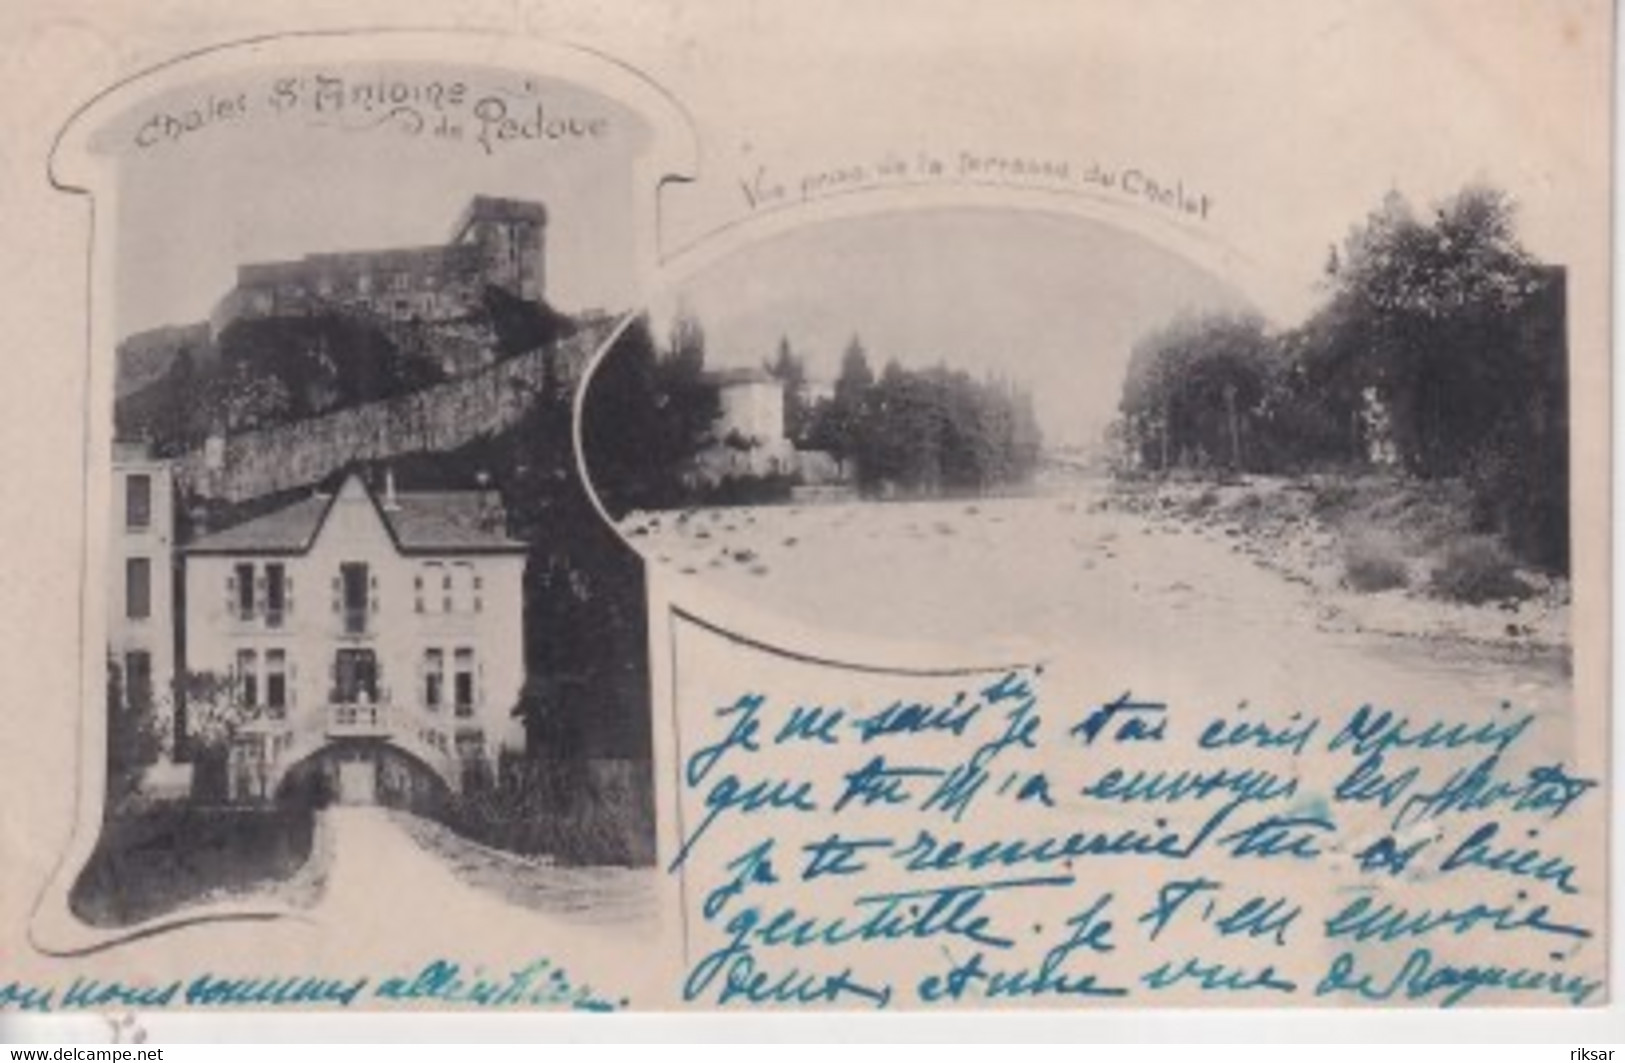 Chalet St Antoine
de Padoue
Vue prise de la terrasse du Chalet
Je ne sais si je t'ai écris depuis
que tu m'a envoyer les photos
je te remercie tu es bien
gentille. Je t'en envoie
deux, et une vue de Bagnères
ou nous sommes allées hier.
delcampe.net
riksar